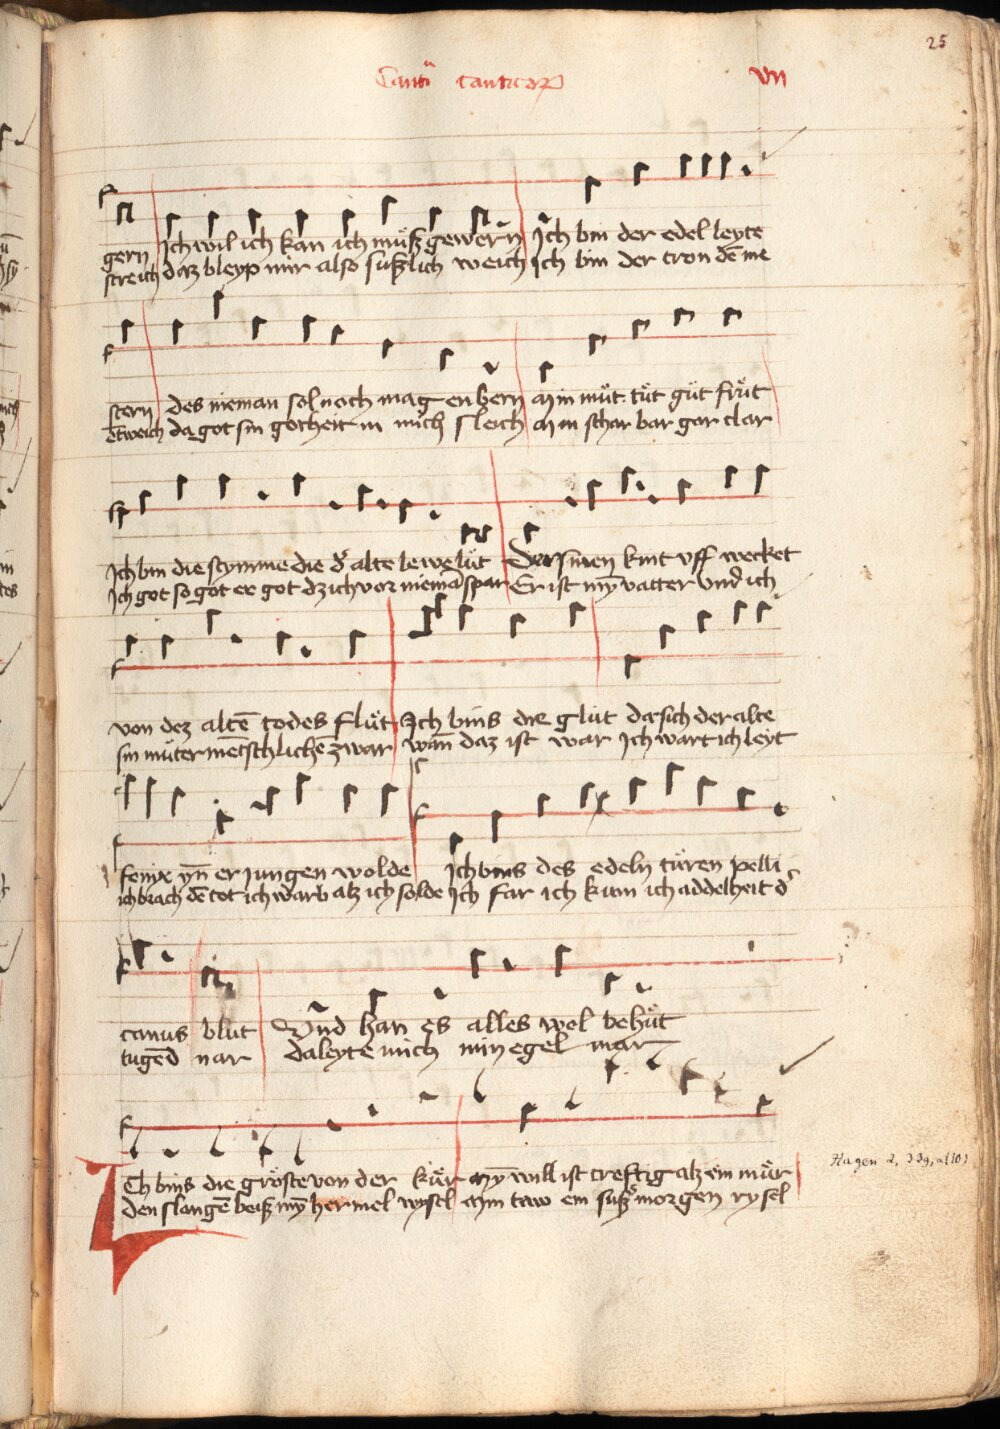 25
Canti canticorꝫ
VII
gern Ich wil ich kan ich muͤß gewern Ich bin der edel leyte
streich daz bleyp mir also sußlich weich Ich bin der tron dē me
stern des nieman sol noch mag enbern Min muͤt tuͤt guͤt fruͤt
da got sin gotheit in mich sleich Min schar bar gar clar
Ich bin die stymme die d' alte lewe luͤt Der sinen kint vff wecket
Ich got so got er got dz ich vor niemā spar Er ist mȳ vatter vnd ich
von dez altē todes fluͤt Ich bins die gluͤt da sich der alte
sin muter mētschlichē zwar wan̄ daz ist war Ich wart ich leyt
fenix yn̄ er jungen wolde Ich bins des edeln tuͤren pelli
ich brach dē tot ich warb alz ich solde Ich far ich kum ich addelheit d'
canus bluͤt Vnd han es alles wol behuͤt
tugēd nar da leyte mich min egel mar
Ich bins die gröste von der kuͤr Mȳ will ist creftig alz ein muͤr
den slangē beiß mȳ hermel wysel Min taw ein suͤß morgen rysel
Hagen 2, 339,